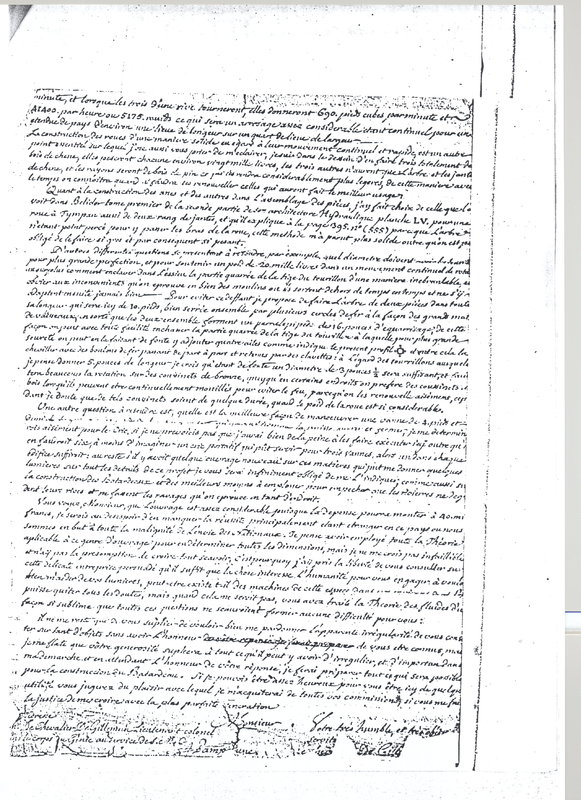 minute, et lorsque les trois d'une rive tourneront, elles donneront 690. pieds cubes par minute et
41400. par heure ou 5175. muids ce qui sera un arrosage assez considerable etant continuel pour une
etendue de pays d'environ une lieue de longeur sur un quart de lieue de largeur
La construction des roues d'une maniere solide eu egard à leur mouvement continuel et rapide, est un autre
point essentiel sur lequel j'ose aussi vous prier de m'éclairer, je suis dans le dessein d'en faire trois totalement de
bois de chene, elles peseront chacune environ vingt mille livres, les trois autres n'auront que l'arbre et les jantes
de chene, et les rayons seront de bois de pin ce qui les rendra considerablement plus legeres, de cette maniere avec
le temps on connoitra quand il faudra les renouveller celles qui auront fait le meilleur usage.
Quant à la construction des ames et des autres dans l'assemblage des pieces, j'ay fait choix de celle que l'on
voit dans Belidor tome premier de la seconde partie de son architecture Hydraulique planche LV. pour une
roue à Tympan aussi de deux rang de jantes, et qu'il explique à la page 395. n° (555) parce que l'arbre
n'etant point percé pour y passer les bras de la roue, cette methode m'a parut plus solide outre qu'on est pas
obligé de le faire si gros et par consequent si pesant.
D'autres differentes questions se presentent à resoudre, par exemple, quel diametre doivent
pour plus grande perfection, et pour soutenir un poid de 20. mille livres dans un mouvement continuel de rota
au surplus comment enclaver dans l'essieu la partie quarrée de la tige du tourillon d'une maniere inebranlable, et
obvier aux inconvenients qu'on eprouve en bien des moulins ou ils sortent dehors de temps en temps et ne s'y
adaptent ensuite jamais bien Pour eviter ce deffaut je propose de faire l'arbre de deux pieces dans toute
sa longueur qui sera icy de 10. pieds, bien serrée ensemble par plusieurs cercles de fer à la façon des grands mats
de vaisseaux, en sorte que les deux ensemble forment un parallelepipede de 16 pouces d'equarrissage, de cette
façon on peut avec toute facilité enchasser la partie quarrée de la tige du tourillon à laquelle pour plus grande
sureté on peut en la faisant de fonte y ajouter quatre ailes comme indique le present profil et outre cela la
cheviller avec des boulons de fer passant de part à part et retenus par des clavettes: à l'égard des tourrillons auxquels
je pense donner 5. pouces de longeur je crois qu'etant de fonte un diametre de 3 pouces ½ sera suffisant, et faire
tourner sur des coussinets de bronze, quoyqu'en certains endroits on prefere des coussinets de
bois lorsqu'ils peuvent etre continuellement mouillés pour eviter le feu, parcequ'on les renouvelle aisement, cepen
dant je doute que de tels coussinets soient de quelque durée, quand le poid de la roue est si considerable.
Une autre question à resoudre est, quelle est la meilleure façon de manoeuvrer une vanne de 4 pieds et
rois aisement pour le Cric, si je ne prevoiois pas que j'aurai bien de la peine à les faire executer icy outre qu'il
en faudroit six à moins d'imaginer un cric portatif qui put servir pour trois vannes, alors un dans chaque
edifice suffiroit: au reste s'il y avoit quelque ouvrage nouveau sur ces matieres qui put me donner quelques
lumieres sur tout les details de ce projet je vous serai infiniment obligé de me l'indiquer; comme aussi sur
la construction des Batardeaux et des meilleurs moyens à employer pour empecher que les rivieres ne degra
dent leurs rives et ne fassent les ravages qu'on eprouve en tant d'endroits.
Vous voyez, Monsieur, que l'ouvrage est assez considerable puisque la depense pourra monter à 40. mille
francs, je serois au desespoir d'en manquer la reussite principalement etant etranger en ce pays ou nous
sommes en but à toute la malignité de l'envie des Nationaux. Je pense avoir employé toute la Theorie
aplicable à ce genre d'ouvrage pour en determiner toutes les dimensions, mais je ne me crois pas infaillible
et n'ay pas la presomption de croire tout scavoir, c'est pourquoy j'ay pris la liberté de vous consulter sur
cette delicate entreprise persuadé qu'il suffit que la chose interesse l'humanité pour vous engager à vouloir
bien m'aider de vos lumieres, peut-etre existe-t-il des machines de cette espece dans
puisse quiter tous les doutes, mais quand cela ne seroit pas, vous avez traité la Theorie des fluides d'une
façon si sublime que toutes ces questions ne scauroient former aucune difficulté pour vous.
Il ne me reste que de vous suplier de vouloir bien me pardonner l'apparente irregularité de vous consul
ter sur tant d'objets sans avoir l'honneur de vous etre connus, mais
je me flate que votre generosité suplera à tout ce qu'il peut y avoir d'irregulier, et d'important dans
ma demarche et en attendant l'honneur de votre réponse, je ferai préparer tout ce qui sera possible
pour la construction du Batardeau. Si je pouvois être assez heureux pour vous être icy de quelque
utilité vous jugerez du plaisir avec lequel je m'acquiterai de toutes vos commissions, si vous me faites
la justice de me croire avec la plus parfaite veneration
adresse Monsieur Votre très humble, et très obeissant
Le Chevalier Lieutenant colonel serviteur
au Corps du Genie au service de